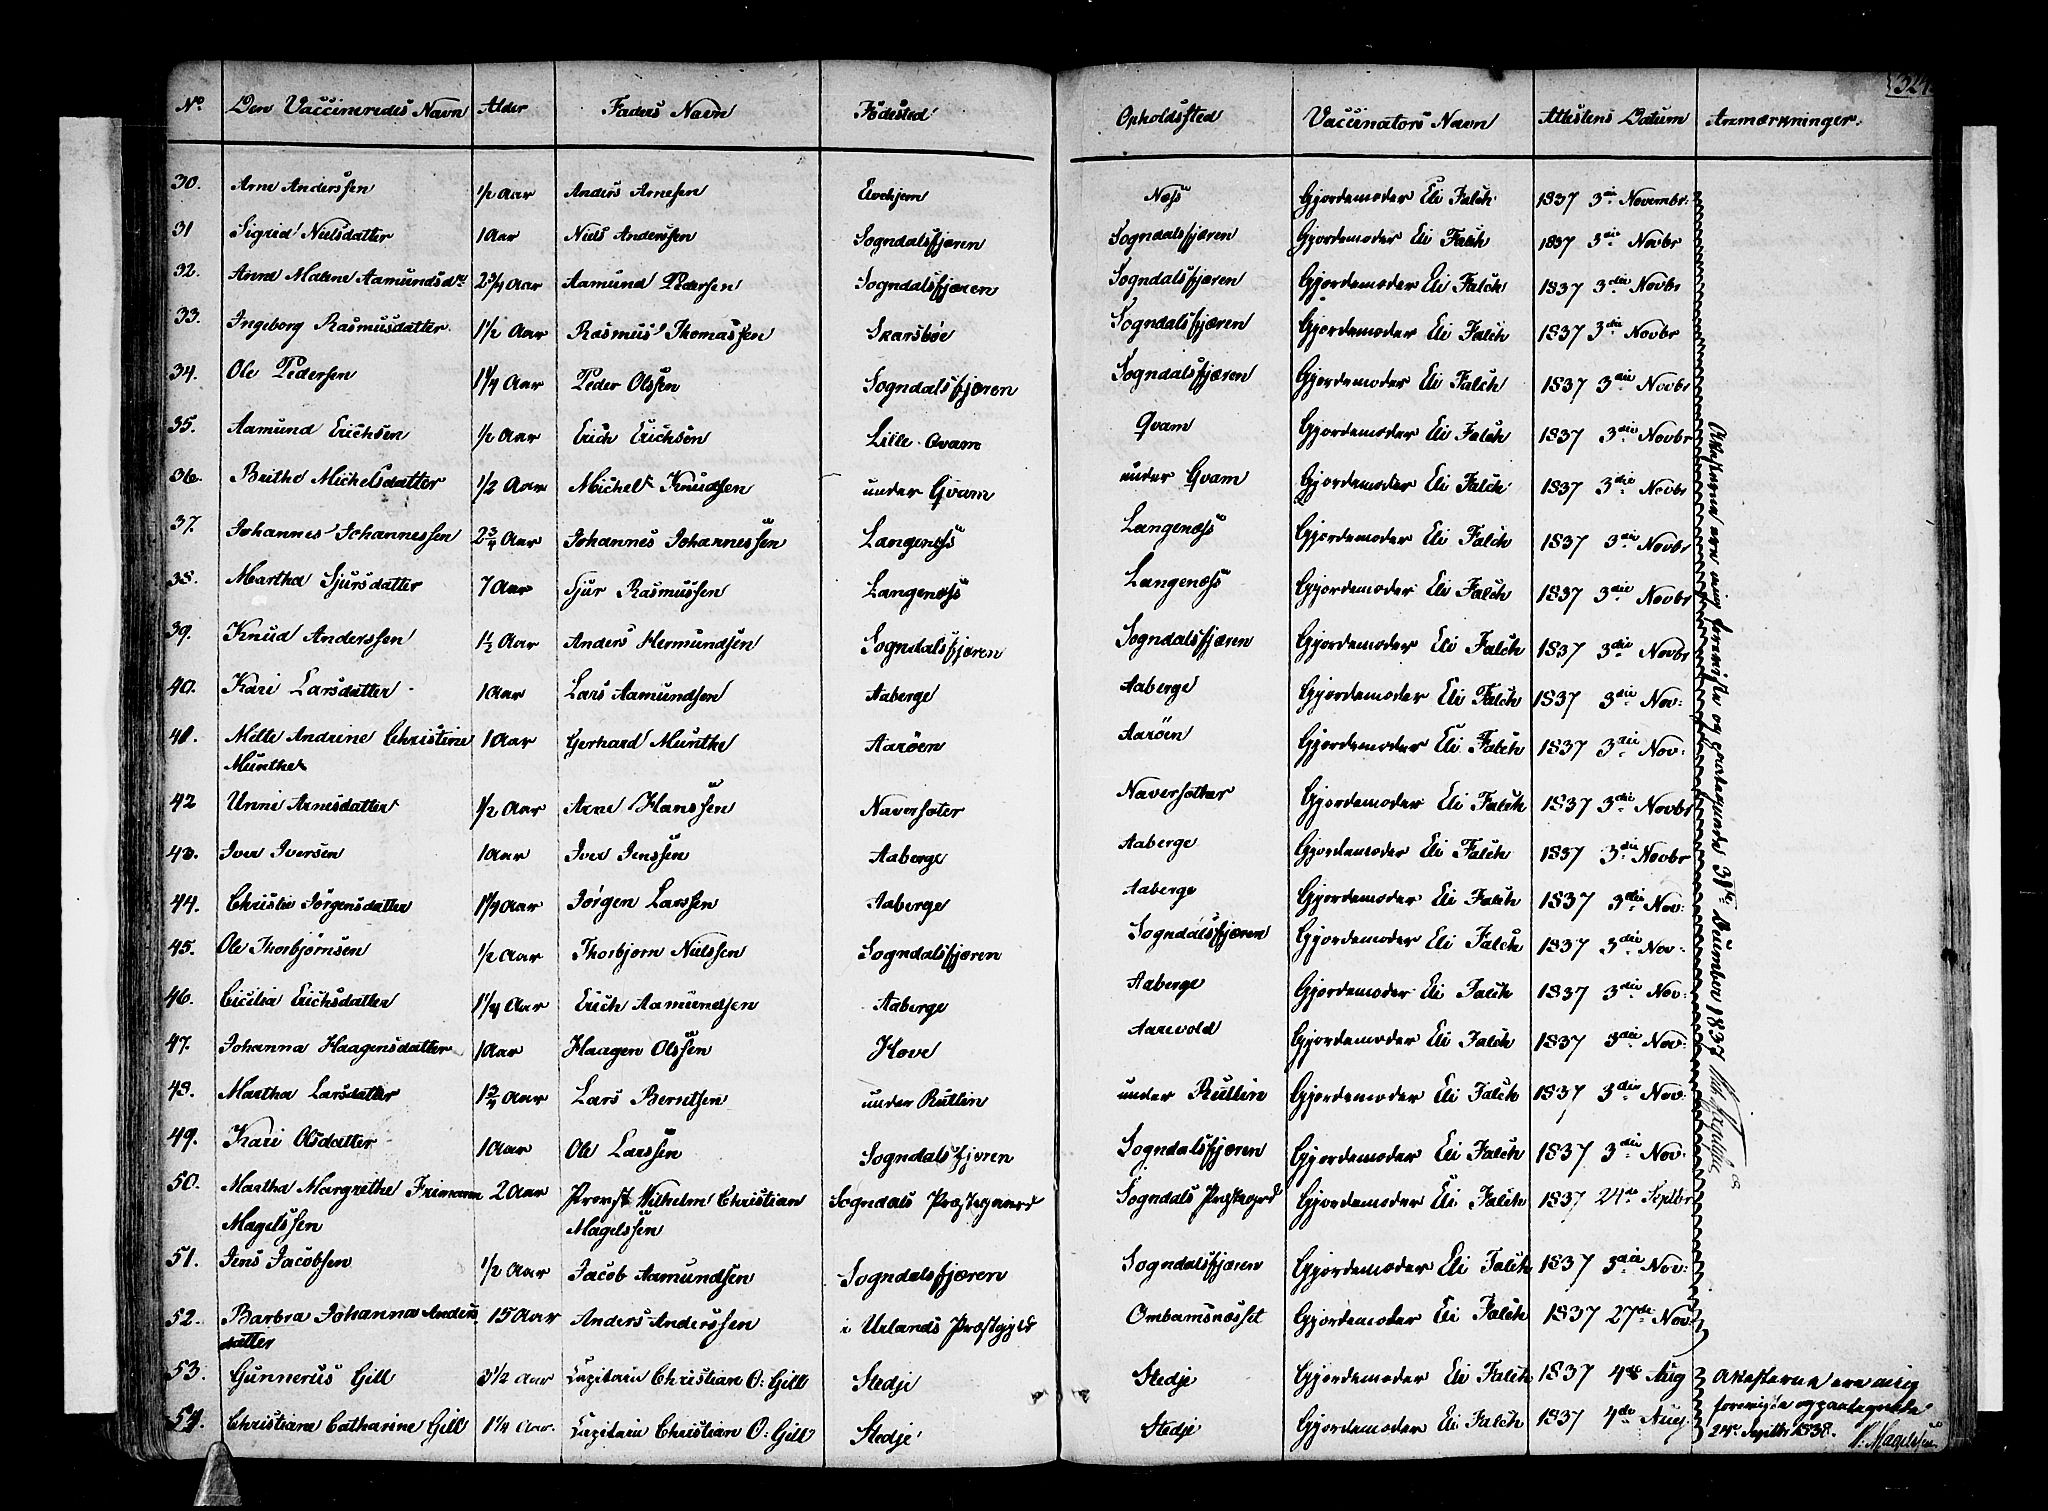 324
No Den Vaccineredes Navn Alder Faders Navn Födested Opholdssted Vaccinators Navn Attestens Datum Anmærkninger.
30. Arne Anderssen 1/2 Aar Anders Arnesen Elvehjem Næss Gjordemoder Eli Falch 1837 3die Novembr:
31 Sigrid Nielsdatter 1 Aar Niels Anderssen Sogndalsfjæren Sogndalsfjæren Gjordemoder Eli Falch 1837 3die Novbr
32. Anne Malene Aamundsdtr 2 3/4 Aar Aamund Pedersen Sogndalsfjæren Sogndalsfjæren Gjordemoder Eli Falch 1837 3die Novbr
33. Ingeborg Rasmusdatter 1 1/2 Aar Rasmus Thomassen Skarsböe Sogndalsfjæren Gjordemoder Eli Falch 1837 3die Novbr
34. Ole Pedersen 1 1/4 Aar Peder Olssen Sogndalsfjæren Sogndalsfjæren Gjordemoder Eli Falch 1837 3die Novbr
35. Aamund Erichsen 1/2 Aar Erich Erichsen Lille Qvam Qvam Gjordemoder Eli Falch 1837 3die Novbr
36. Brithe Michelsdatter 1/2 Aar Michel Knudsen under Qvam under Qvam Gjordemoder Eli Falch 1837 3die Novbr
37. Johannes Johannessen 2 3/4 Aar Johannes Johannessen Langenæss Langenæss Gjordemoder Eli Falch 1837 3die Novbr
38. Martha Sjursdatter 7 Aar Sjur Rasmussen Langenæss Langenæss Gjordemoder Eli Falch 1837 3die Novbr
39. Knud Anderssen 1 1/2 Aar Anders Hermundsen Sogndalsfjæren Sogndalsfjæren Gjordemoder Eli Falch 1837 3die Novbr
40. Kari Larsdatter 1 Aar Lars Aamundsen Aaberge Aaberge Gjordemoder Eli Falch 1837 3die Nov:
41. Mette Andrine Christine 1 Aar Gerhard Munthe Aaröen Aaröen Gjordemoder Eli Falch 1837 3die Nov:
Munthe
42 Unni Arnesdatter 1/2 Aar Arne Hanssen Naversæter Naversætter Gjordemoder Eli Falch 1837 3die Novbr
43. Iver Iversen 1 Aar Iver Jenssen Aaberge Aaberge Gjordemoder Eli Falch 1837 3die Novbr
44. Christie Jörgensdatter 1 1/4 Aar Jörgen Larssen Aaberge Aaberge Gjordemoder Eli Falch 1837 3die Nov:
45. Ole Thorbjörnsen 1/2 Aar Thorbjörn Nielssen Sogndalsfjæren Sogndalsfjæren Gjordemoder Eli Falch 1837 3die Nov:
46. Cicilia Erichsdatter 1 1/4 Aar Erich Aamundsen Aaberge Aaberge Gjordemoder Eli Falch 1837 3die Nov:
47. Johanna Haagensdatter 1 Aar Haagen Olssen Hove Aarevold Gjordemoder Eli Falch 1837 3die Nov:
48. Martha Larsdatter 1 3/4 Aar Lars Berntsen under Rutlin under Rutlin Gjordemoder Eli Falch 1837 3die Nov:
49. Kari Olsdatter 1 Aar Ole Larssen Sogndalsfjæren Sogndalsfjæren Gjordemoder Eli Falch 1837 3die Nov:
50. Martha Margrethe Frimann 2 Aar Provst Wilhelm Christian Sogndals Præstegaard Sogndals Præstegrd Gjordemoder Eli Falch 1837 24de Septbr
Magelssen Magelssen
51. Jens Jacobsen 1/2 Aar Jacob Aamundsen Sogndalsfjæren Sogndalsfjæren Gjordemoder Eli Falch 1837 3die Nov:
52. Barbra Johanna Anders 15 Aar Anders Anderssen i Urlands Præstgjeld Ombamsnæsset Gjordemoder Eli Falch 1837 27de Nov
datter
53. Gunnerus Gill 3 1/2 Aar Capitain Christian O: Gill Stedje Stedje Gjordemoder Eli Falch 1837 4de Aug
54. Christiane Catharine Gill 1 1/4 Aar. Capitain Christian O: Gill Stedje Stedje Gjordemoder Eli Falch 1837 4de Aug.
Attesterne ere mig foreviste og paategnede 31te December 1837
Attesterne ere mig
foreviste og paategnede
24de Septbr 1838.
W: Magelssen